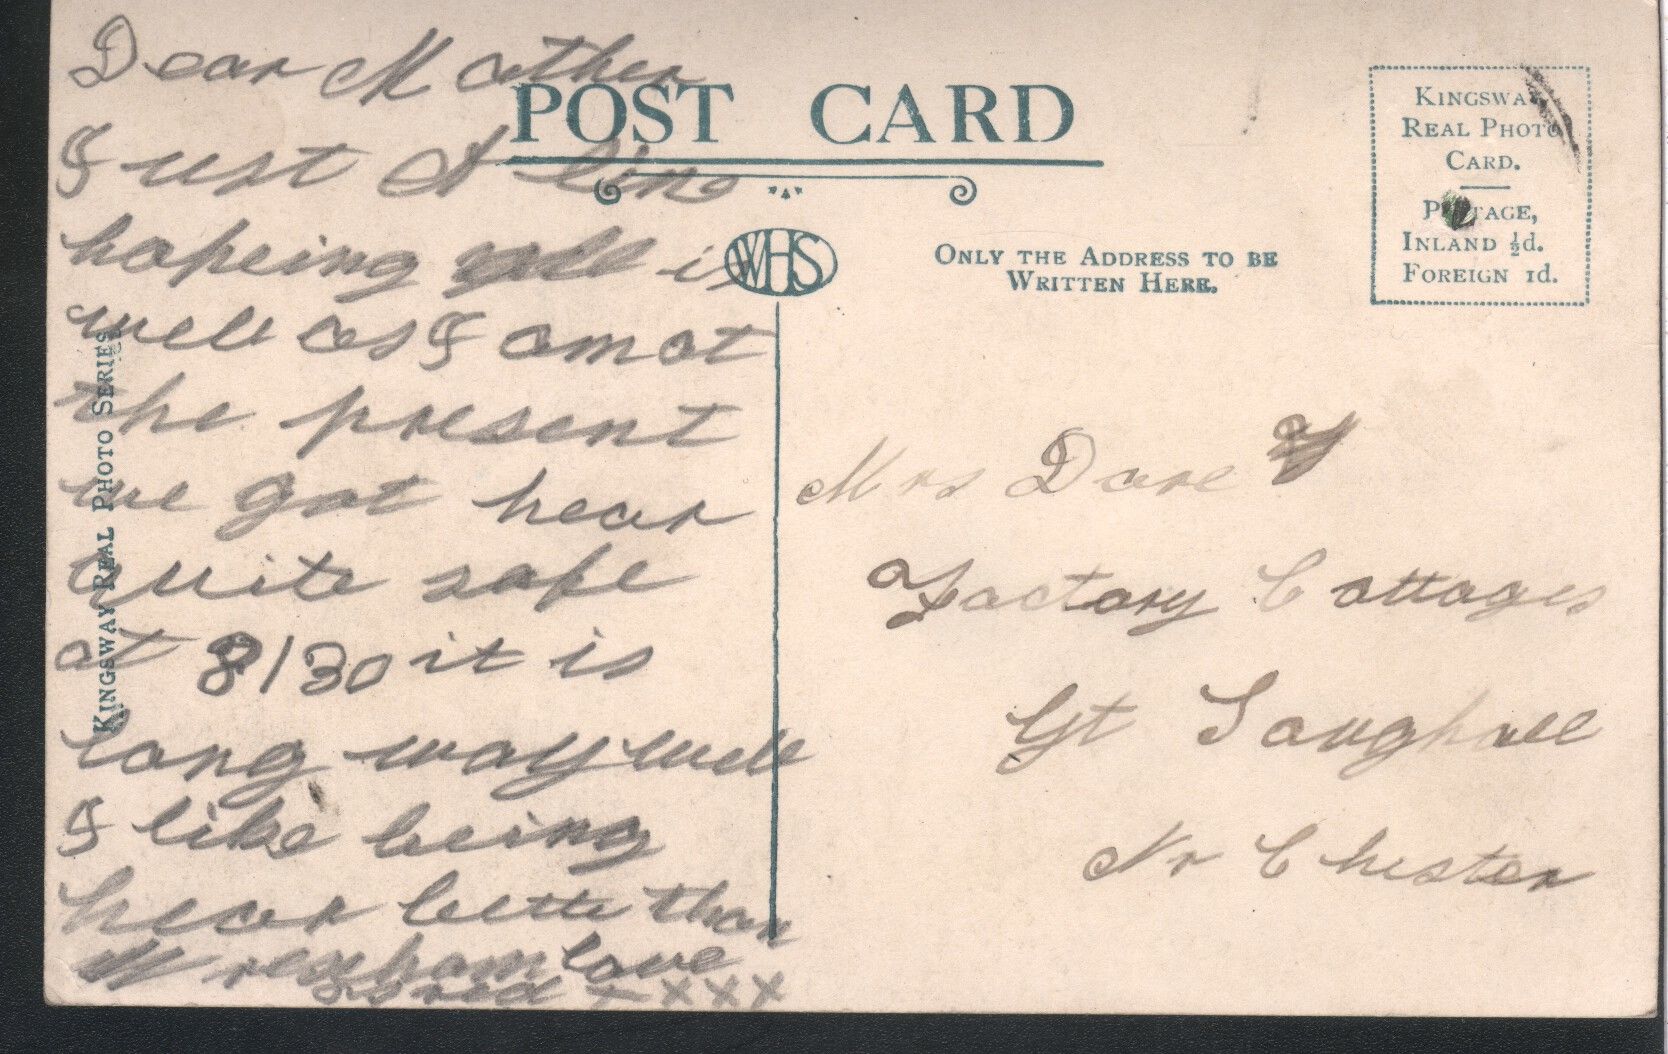 Dear Mother
Just A line
hopeing all is
well as I am at
the present
we got hear
quite safe
at 8/30 it is
long way well
I like being
hear bette than
Wrexham love
xxxx
POST CARD
WHS
ONLY THE ADDRESS TO BE
WRITTEN HERE.
KINGSWAY
REAL PHOTO
CARD.
POSTAGE,
INLAND ½d.
FOREIGN 1d.
KINGSWAY REAL PHOTO SERIES
Mrs Dare
Factory Cottages
Gt Saughall
Nr Chester